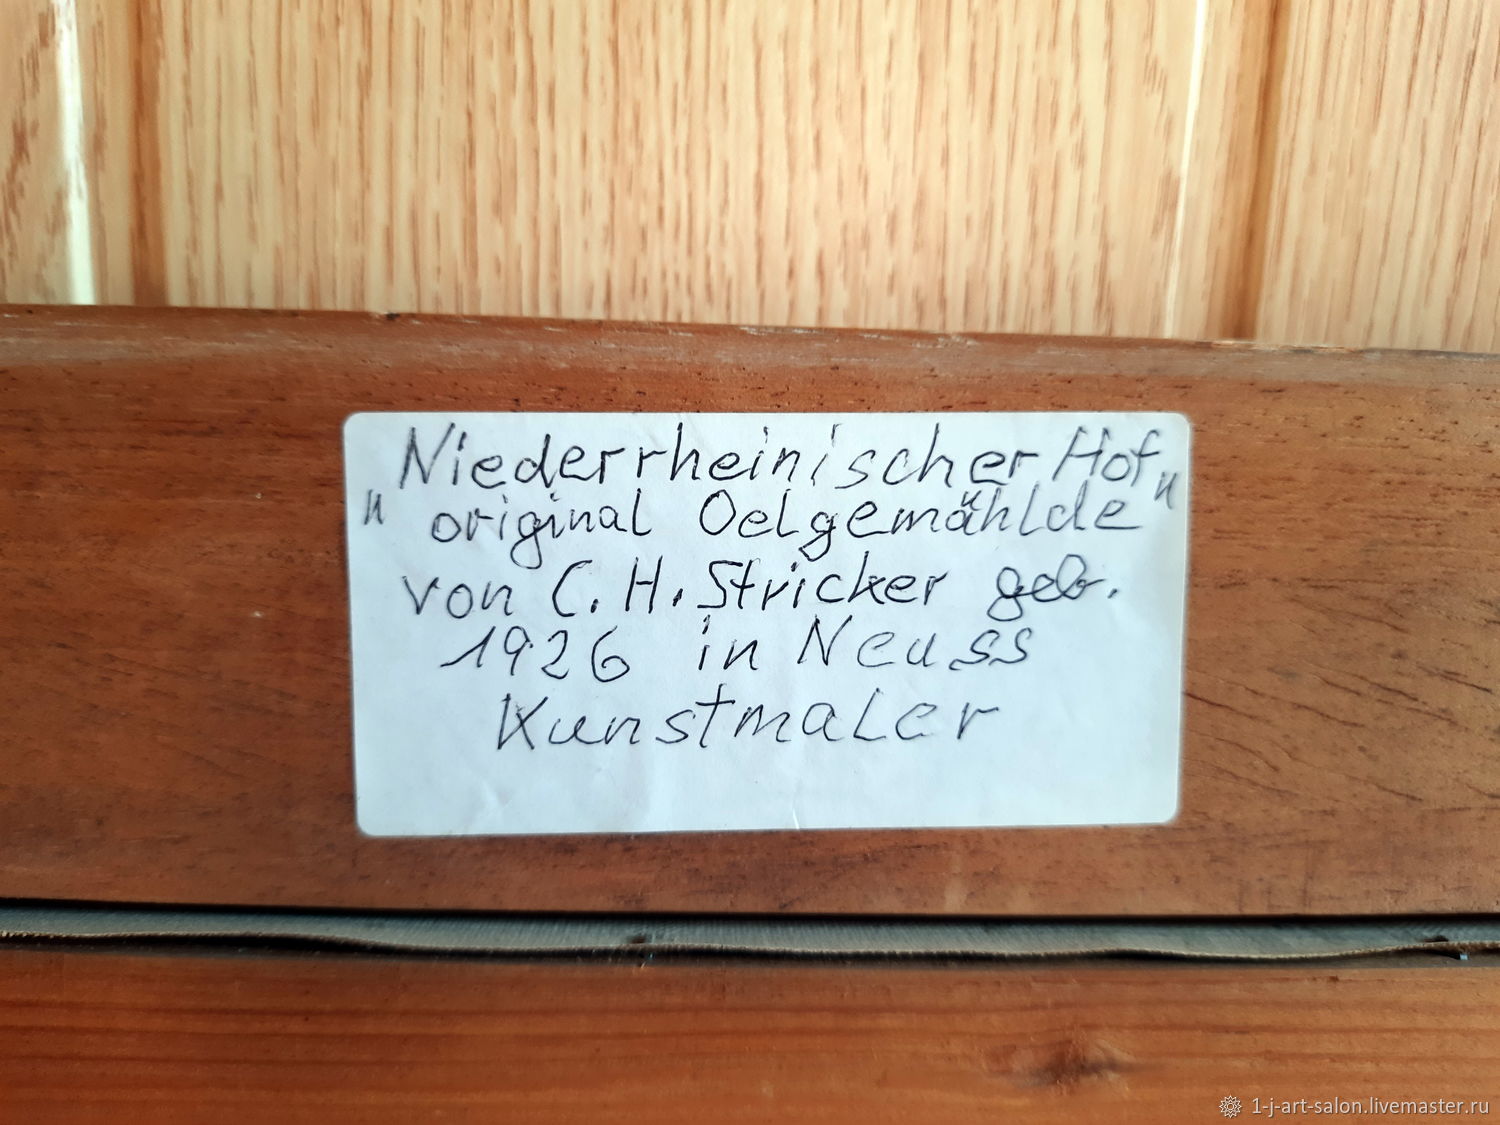 Niederrheinischer Hof
" original Oelgemählde "
von C. H. Stricker geb.
1926 in Neuss
Kunstmaler
1-j-art-salon.livemaster.ru